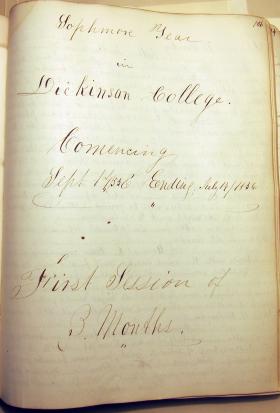 Sophmore Year
in
Dickinson College.
Comencing
Sept Ending, July
First Session of
3. Months.